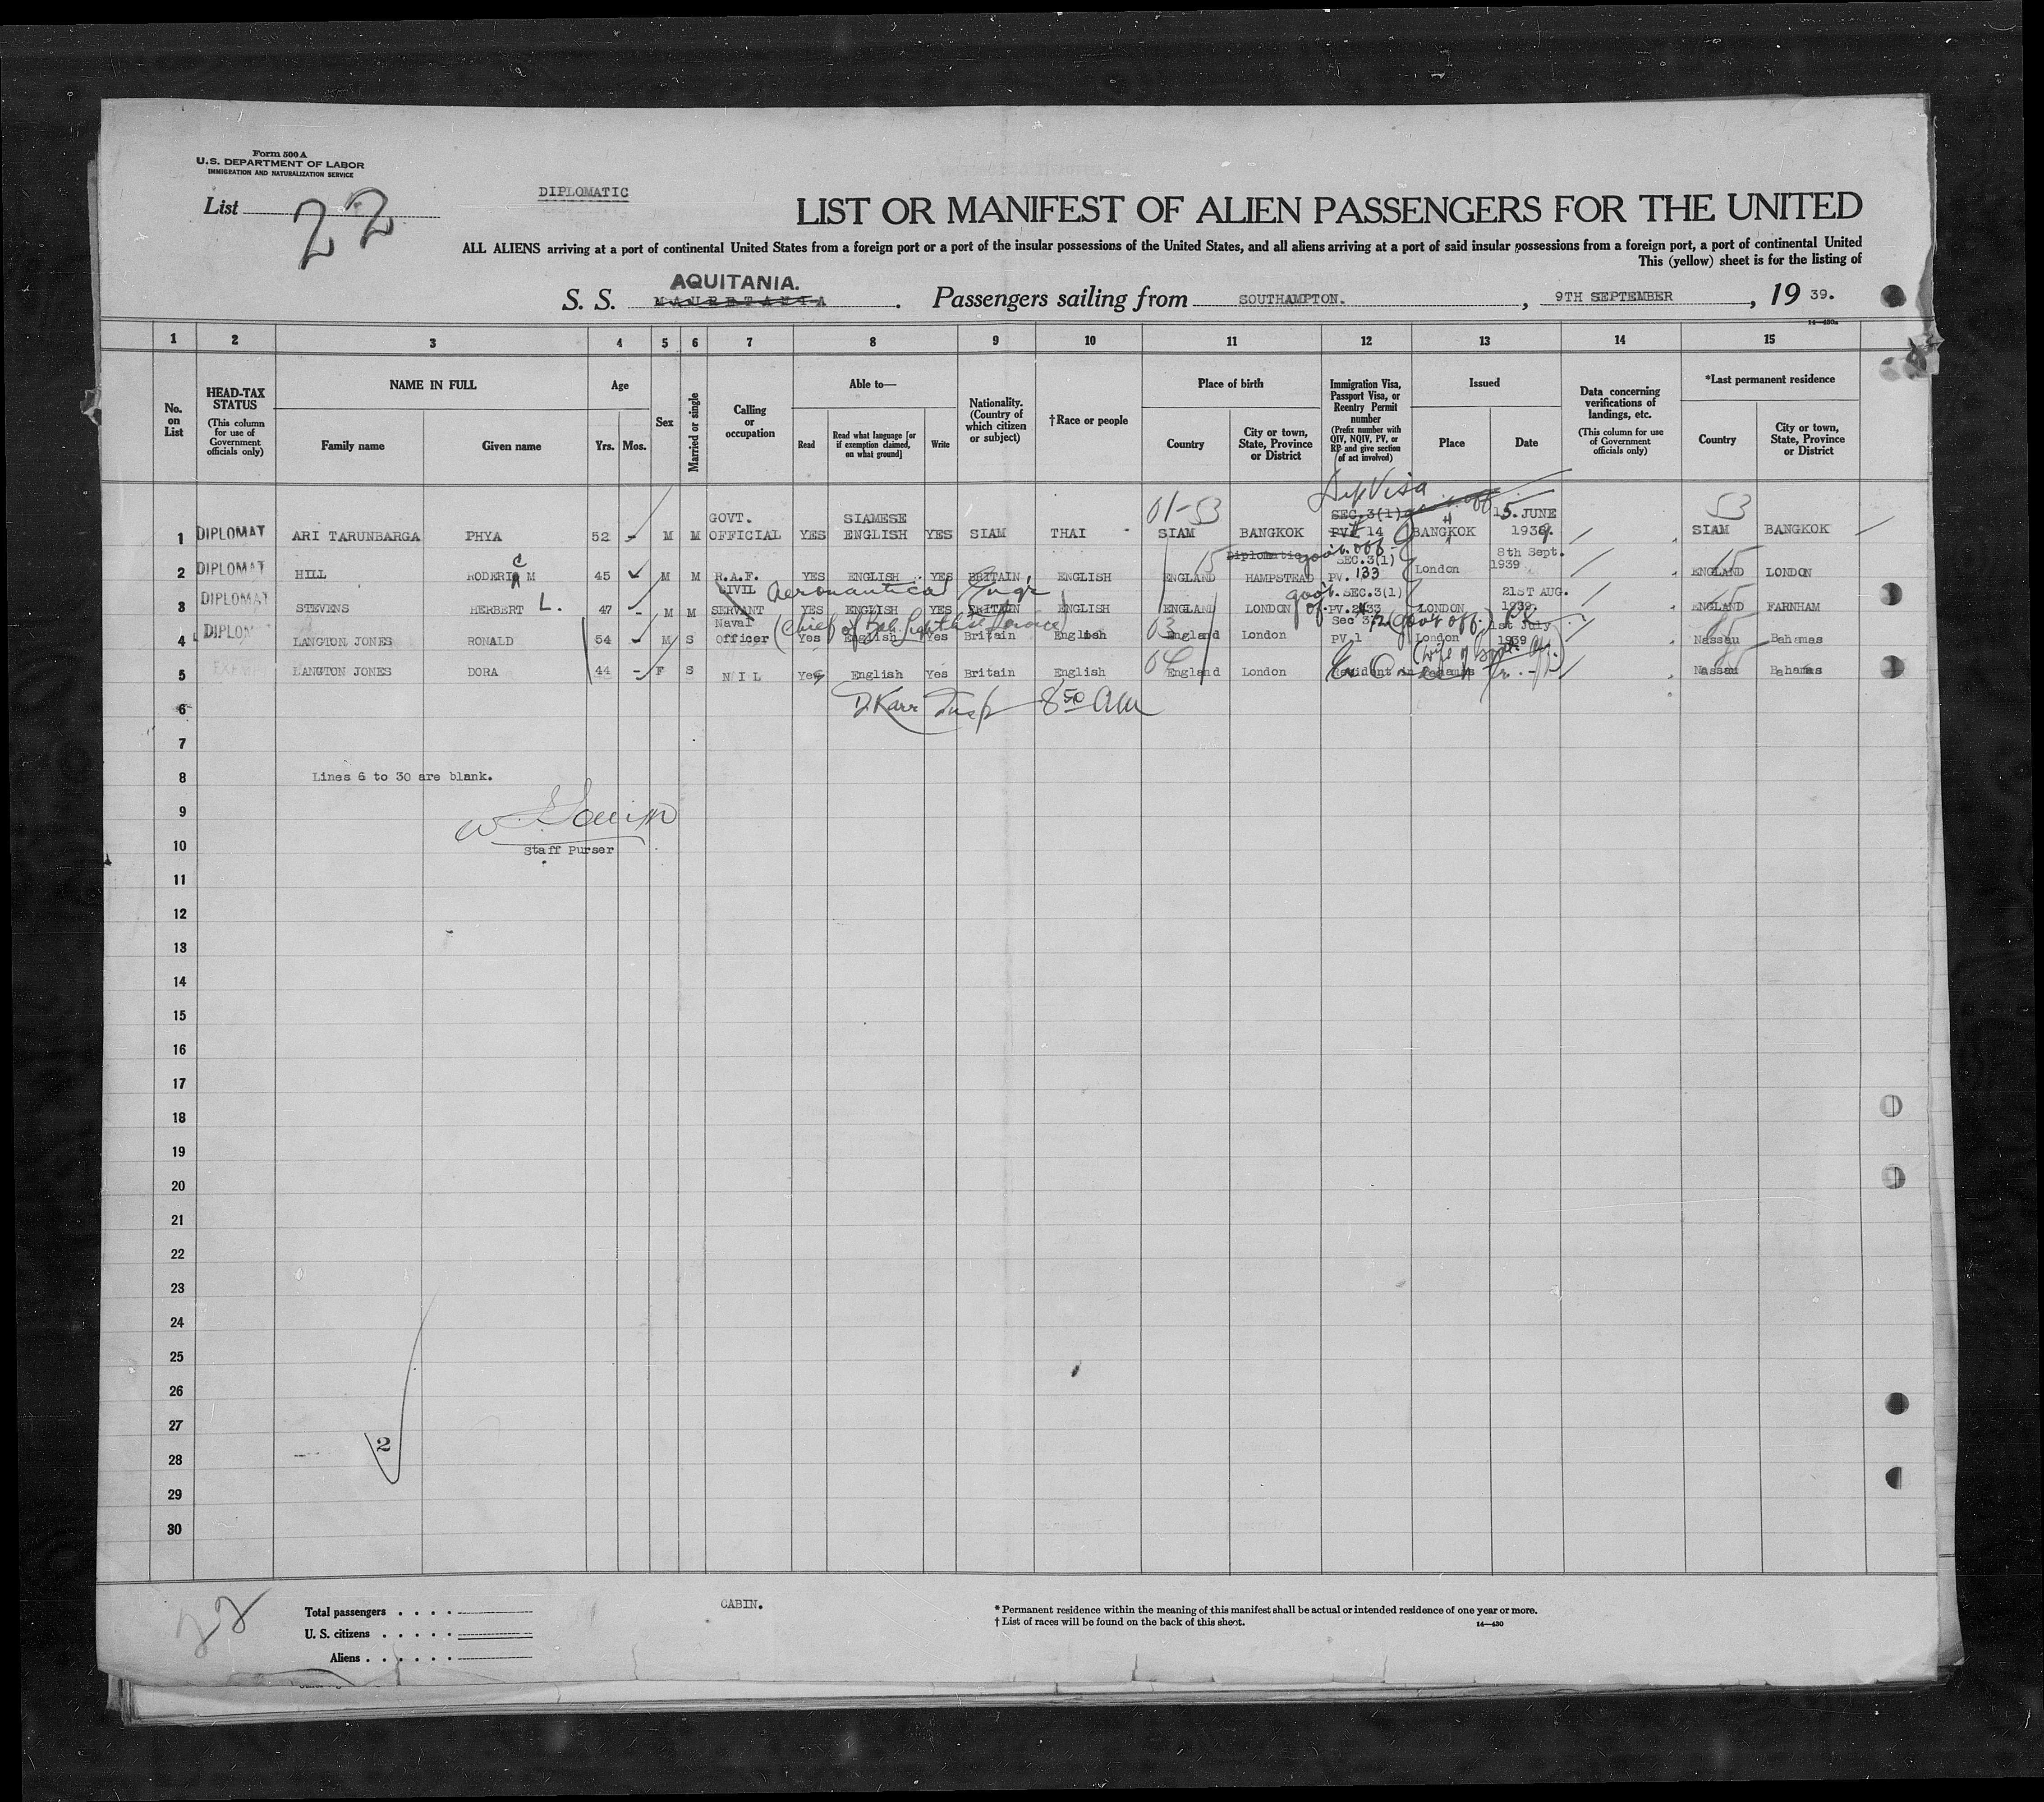 Form 500 A
U.S. DEPARTMENT OF LABOR
IMMIGRATION AND NATURALIZATION SERVICE
List 22
DIPLOMATIC
LIST OR MANIFEST OF ALIEN PASSENGERS FOR THE UNITED
ALL ALIENS arriving at a port of continental United States from a foreign port or a port of the insular possessions of the United States, and all aliens arriving at a port of said insular possessions from a foreign port, a port of continental United
This (yellow) sheet is for the listing of
AQUITANIA.
S. S. MAURETANIA. Passengers sailing from SOUTHAMPTON., 9TH SEPTEMBER, 19 39.
14—430a
1 2 3 4 5 6 7 8 9 10 11 12 13 14 15
No. on List
HEAD-TAX STATUS
(This column for use of Government officials only)
NAME IN FULL
Family name Given name
Age
Yrs. Mos.
Sex
Married or single
Calling or occupation
Able to—
Read
Read what language [or if exemption claimed, on what ground]
Write
Nationality. (Country of which citizen or subject)
†Race or people
Place of birth
Country
City or town, State, Province or District
Immigration Visa, Passport Visa, or Reentry Permit number
(Prefix number with QIV, NQIV, PV, or RP and give section of act involved)
Issued
Place Date
Data concerning verifications of landings, etc.
(This column for use of Government officials only)
*Last permanent residence
Country
City or town, State, Province or District
Dip Visa
01-53 53
1 DIPLOMAT ARI TARUNBARGA PHYA 52 M M GOVT. OFFICIAL YES SIAMESE ENGLISH YES SIAM THAI SIAM BANGKOK SEC.3(1) PV# 14 BANGKOK 15. JUNE 1939. SIAM BANGKOK
Diplomatic gov't. off
2 DIPLOMAT HILL RODERIC M 45 M M R.A.F. YES ENGLISH YES BRITAIN ENGLISH 15 ENGLAND HAMPSTEAD SEC.3(1) PV. 133 London 8th Sept. 1939 15 ENGLAND LONDON
Aeronautical Engr
3 DIPLOMAT STEVENS HERBERT L. 47 M M CIVIL SERVANT YES ENGLISH YES BRITAIN ENGLISH ENGLAND LONDON gov't. of. SEC.3(1) PV.2433 LONDON 21ST AUG. 1939. 15 ENGLAND FARNHAM
(Chief of Bah. Lighthse Service)
4 DIPLOM LANGTON JONES RONALD 54 M S Naval Officer Yes English Yes Britain English 03 England London Sec 3 PV.1 (gov't off.) London 1st July 1939 85 Nassau Bahamas
(wife of
5 EXEMP LANGTON JONES DORA 44 F S N I L Yes English Yes Britain English 04 England London Resident in Bahamas 85 Nassau Bahamas
6 D. Karr Insp 8 50 AM
7
8 Lines 6 to 30 are blank.
9
10 Staff Purser
11
12
13
14
15
16
17
18
19
20
21
22
23
24
25
26
27
2
28
29
30
22
Total passengers
U. S. citizens
Aliens
CABIN.
* Permanent residence within the meaning of this manifest shall be actual or intended residence of one year or more.
† List of races will be found on the back of this sheet.
14—430